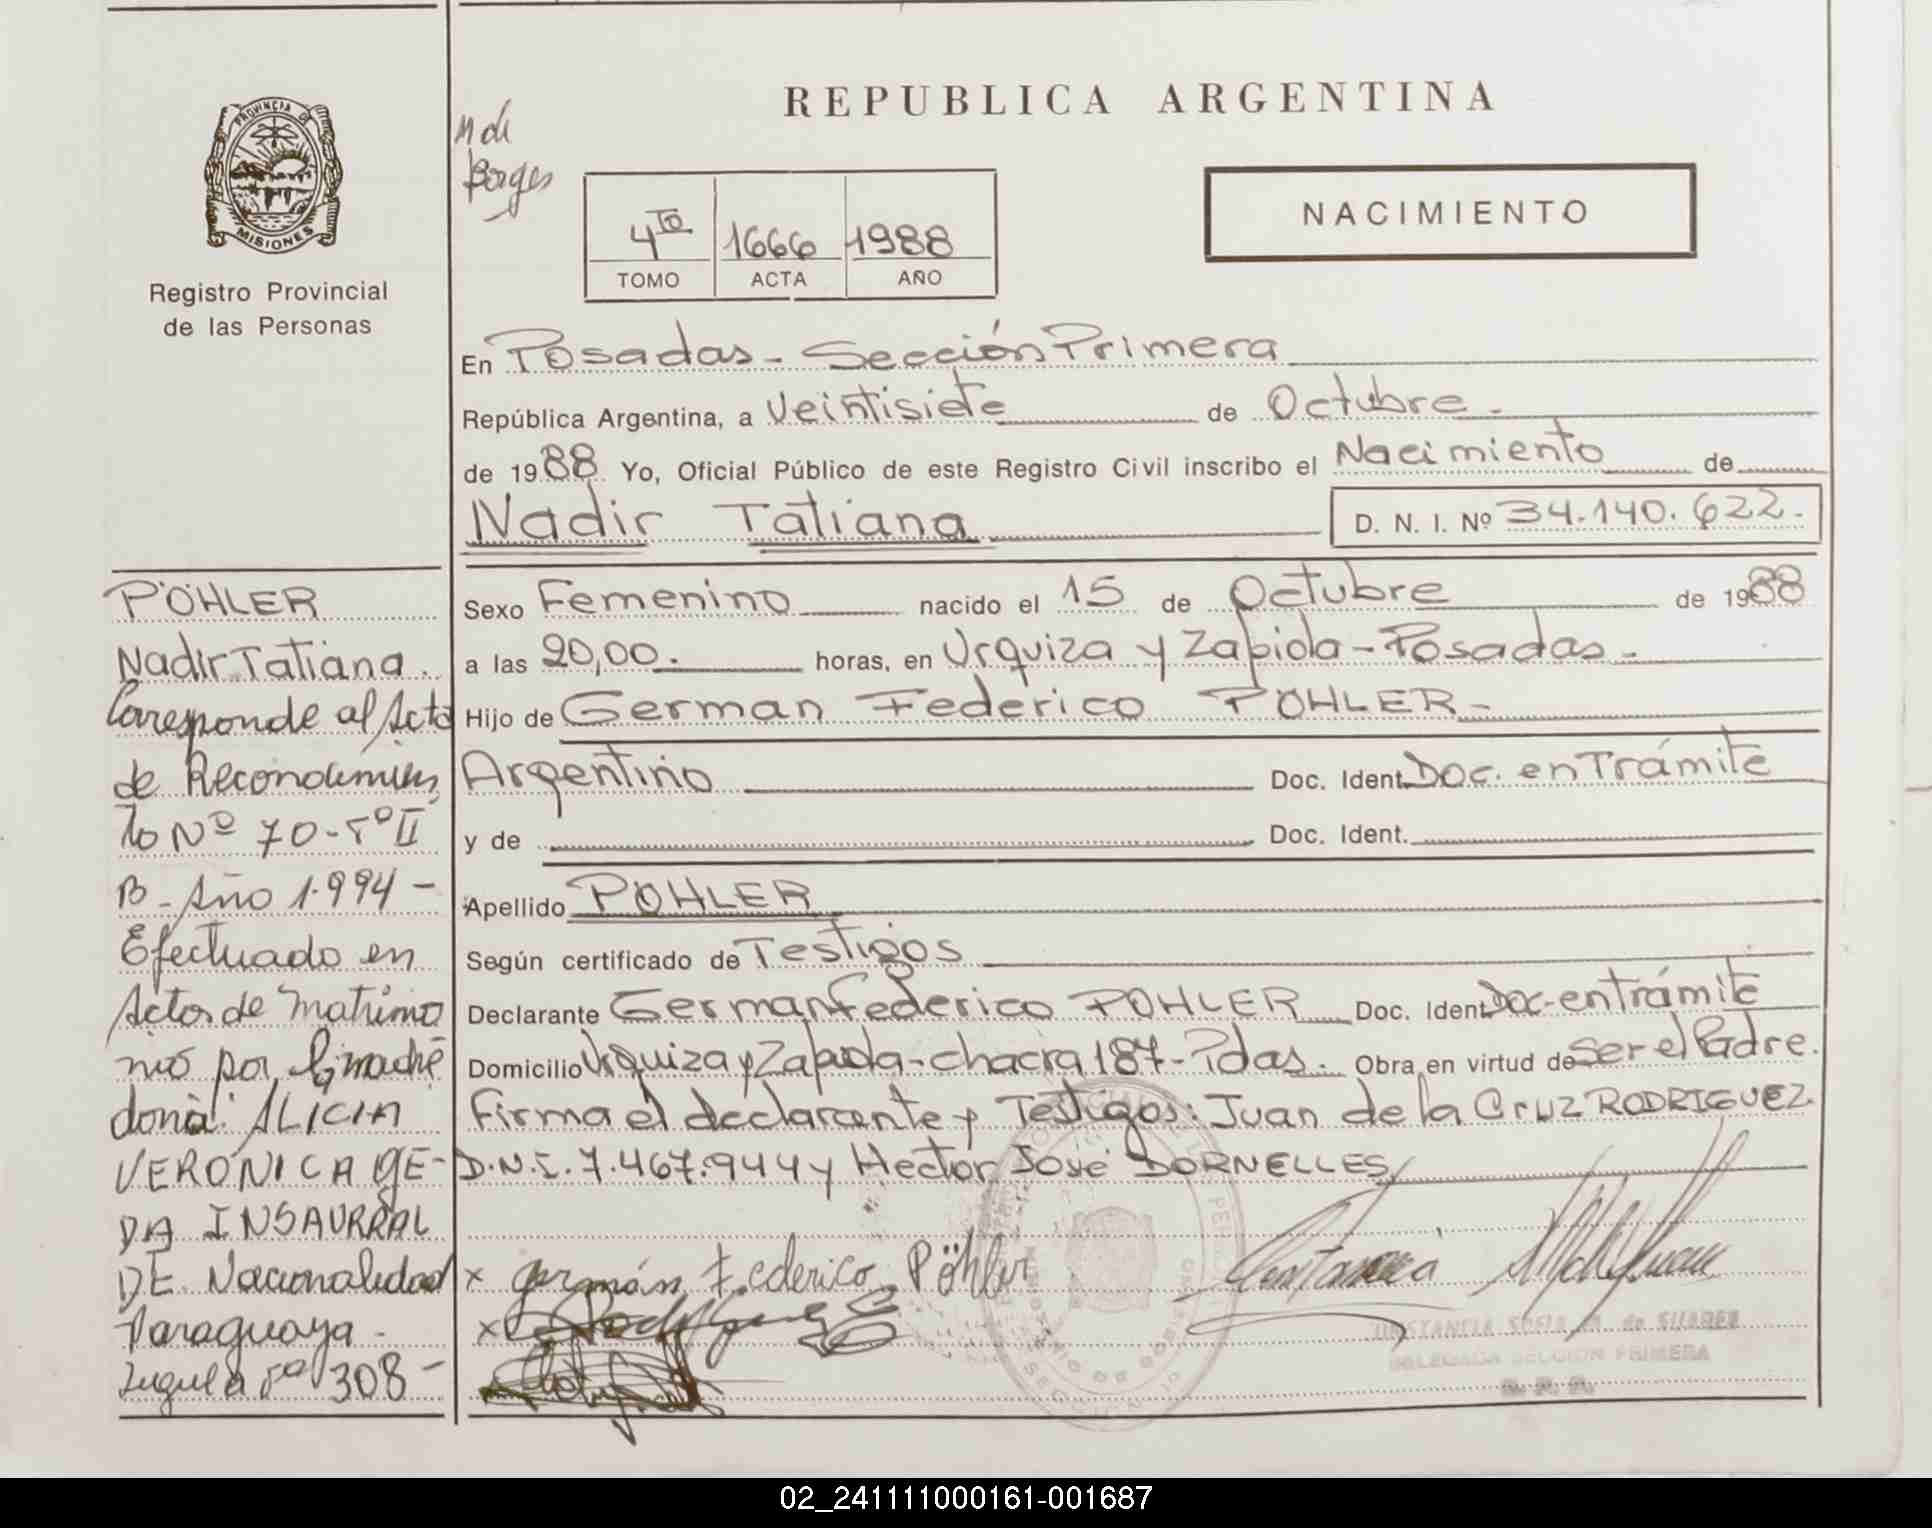 REPUBLICA ARGENTINA
PROVINCIA D
MISIONES
Registro Provincial
de las Personas
Borges
4TO 1666 1988
TOMO ACTA AÑO
NACIMIENTO
En Posadas - Sección Primera
República Argentina, a Veintisiete de Octubre.
de 1988 Yo, Oficial Público de este Registro Civil inscribo el Nacimiento de
Nadir Tatiana D. N. I. Nº 34.140.622.
Sexo Femenino nacido el 15 de Octubre de 1988
a las 20,00. horas, en Urquiza y Zapiola - Posadas -
Hijo de German Federico PÖHLER -
Argentino Doc. Ident. Doc. en Trámite
y de Doc. Ident.
Apellido PÖHLER
Según certificado de Testigos
Declarante German Federico POHLER Doc. Ident. Doc. en trámite
Domicilio Urquiza y Zapiola - chacra 187 - Pdas. Obra en virtud de ser el Padre.
Firma el declarante y Testigos: Juan de la Cruz RODRIGUEZ
D.N.I. 7.467.944 y Hector José DORNELLES
x germán Federico Pöhler
x Rodriguez
CONSTANCIA SOFIA de SUAREZ
DELEGADA SECCION PRIMERA
PÖHLER
Nadir Tatiana.
Corresponde al Acta
de Reconocimien
to Nº 70 - Tº II
B - Año 1.994 -
Efectuado en
Actos de Matrimo
nio por la madre
dona: ALICIA
VERONICA OJE-
DA INSAURRAL
DE. Nacionalidad
Paraguaya -
308 -
02_241111000161-001687